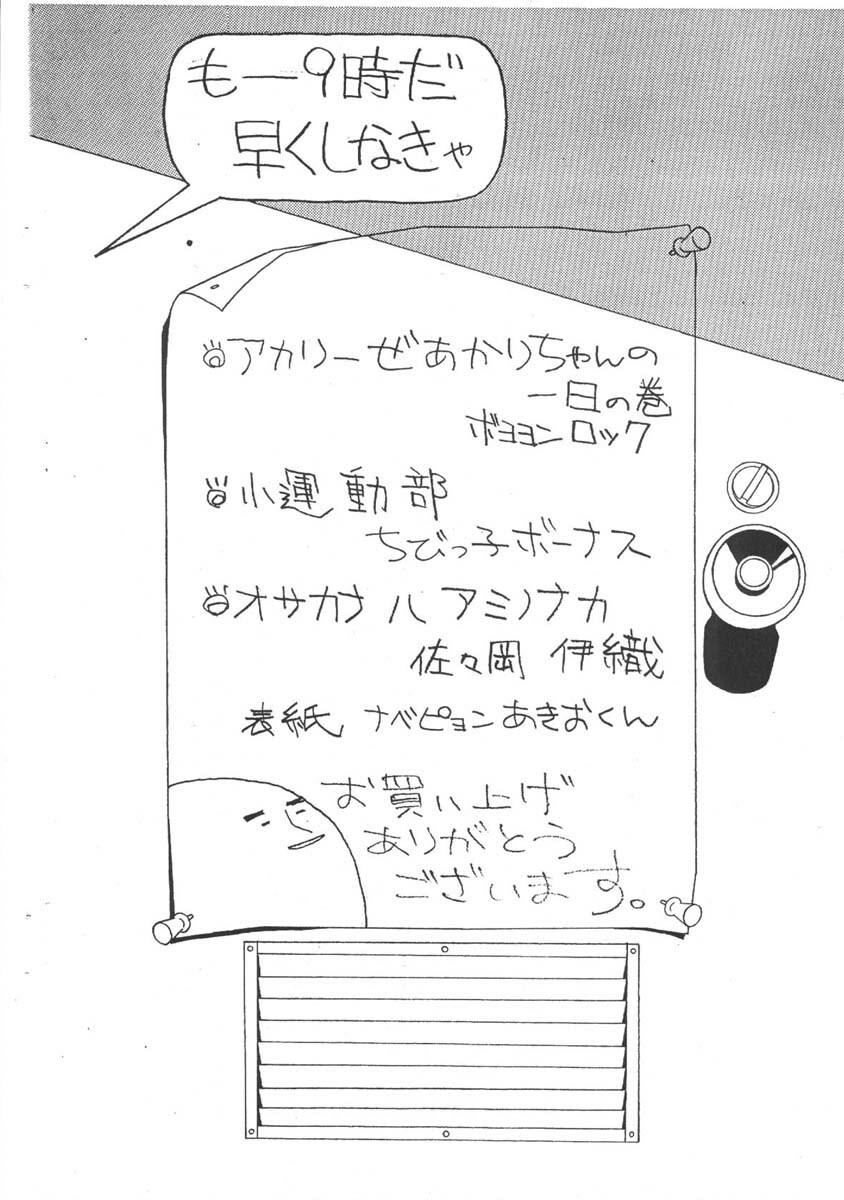 もー9時だ
早くしなきゃ
◎アカリーぜあかりちゃんの
一日の巻
ボヨヨンロック
◎小運動部
ちびっ子ボーナス
◎オサカナハアミノナカ
佐々岡 伊織
表紙 ナベピョンあきおくん
お買い上げ
ありがとう
ございます。